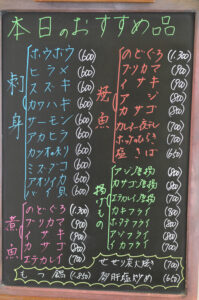 本日のおすすめ品
刺身
ホウボウ (600)
ヒラメ (600)
スズキ (600)
カワハギ (600)
サーモン (600)
アカヒラ (600)
カツオのタタキ (600)
ミズダコ (600)
アオリイカ (600)
ツブ貝 (600)
煮魚
のどぐろ (1,300)
ブリカマ (900)
イサキ (900)
カサゴ (900)
エテカレイ (700)
焼魚
のどぐろ (1,300)
ブリカマ (900)
イサキ (900)
アジ (700)
カサゴ (900)
カレイ一夜干し (700)
ホッケのひらき (700)
塩さば (650)
揚げもの
アジ唐揚 (700)
カサゴ唐揚 (900)
エテカレイ唐揚 (700)
カキフライ (700)
ホタテフライ (700)
アジフライ (700)
イカフライ (700)
せせり炭火焼 (700)
砂肝塩炒め (650)